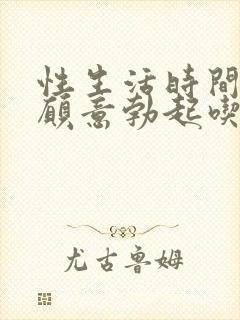 性生活時間
願意勃起喫
尤古魯姆